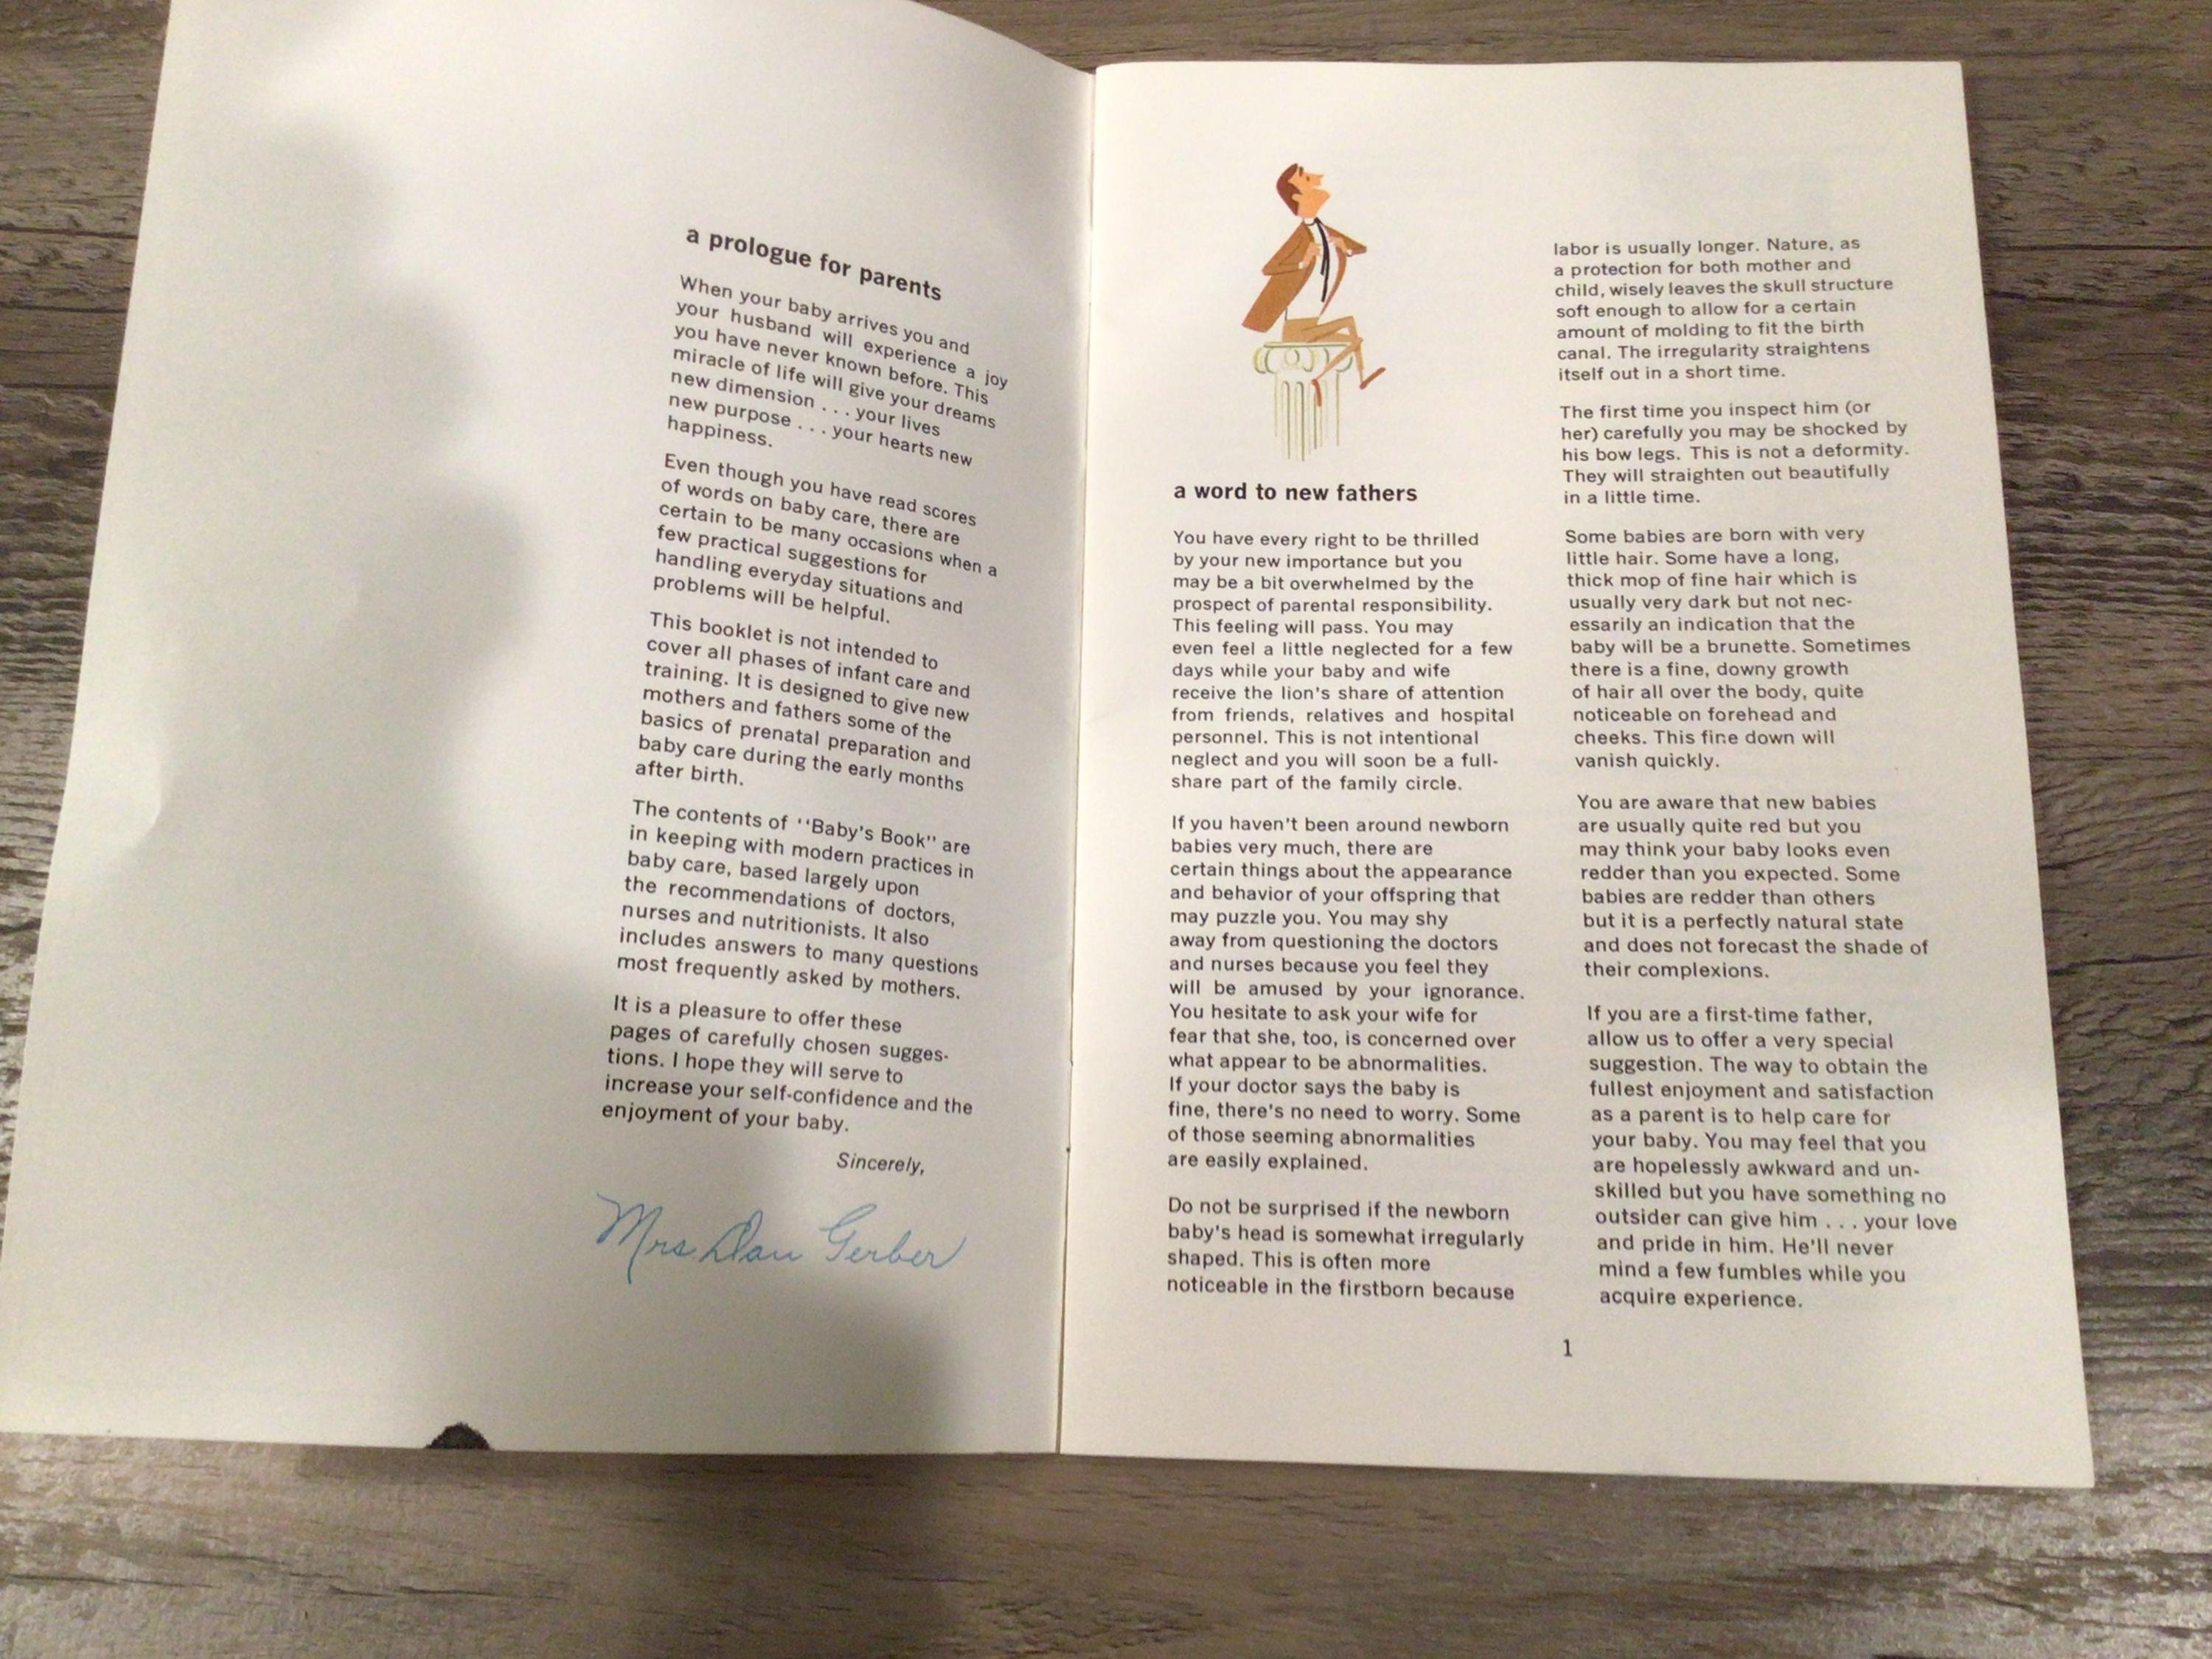 a prologue for parents
When your baby arrives you and
your husband will experience a joy
you have never known before. This
miracle of life will give your dreams
new dimension . . . your lives
new purpose . . . your hearts new
happiness.
Even though you have read scores
of words on baby care, there are
certain to be many occasions when a
few practical suggestions for
handling everyday situations and
problems will be helpful.
This booklet is not intended to
cover all phases of infant care and
training. It is designed to give new
mothers and fathers some of the
basics of prenatal preparation and
baby care during the early months
after birth.
The contents of ''Baby's Book'' are
in keeping with modern practices in
baby care, based largely upon
the recommendations of doctors,
nurses and nutritionists. It also
includes answers to many questions
most frequently asked by mothers.
It is a pleasure to offer these
pages of carefully chosen sugges-
tions. I hope they will serve to
increase your self-confidence and the
enjoyment of your baby.
Sincerely,
Mrs Dan Gerber
a word to new fathers
You have every right to be thrilled
by your new importance but you
may be a bit overwhelmed by the
prospect of parental responsibility.
This feeling will pass. You may
even feel a little neglected for a few
days while your baby and wife
receive the lion's share of attention
from friends, relatives and hospital
personnel. This is not intentional
neglect and you will soon be a full-
share part of the family circle.
If you haven't been around newborn
babies very much, there are
certain things about the appearance
and behavior of your offspring that
may puzzle you. You may shy
away from questioning the doctors
and nurses because you feel they
will be amused by your ignorance.
You hesitate to ask your wife for
fear that she, too, is concerned over
what appear to be abnormalities.
If your doctor says the baby is
fine, there's no need to worry. Some
of those seeming abnormalities
are easily explained.
Do not be surprised if the newborn
baby's head is somewhat irregularly
shaped. This is often more
noticeable in the firstborn because
labor is usually longer. Nature, as
a protection for both mother and
child, wisely leaves the skull structure
soft enough to allow for a certain
amount of molding to fit the birth
canal. The irregularity straightens
itself out in a short time.
The first time you inspect him (or
her) carefully you may be shocked by
his bow legs. This is not a deformity.
They will straighten out beautifully
in a little time.
Some babies are born with very
little hair. Some have a long,
thick mop of fine hair which is
usually very dark but not nec-
essarily an indication that the
baby will be a brunette. Sometimes
there is a fine, downy growth
of hair all over the body, quite
noticeable on forehead and
cheeks. This fine down will
vanish quickly.
You are aware that new babies
are usually quite red but you
may think your baby looks even
redder than you expected. Some
babies are redder than others
but it is a perfectly natural state
and does not forecast the shade of
their complexions.
If you are a first-time father,
allow us to offer a very special
suggestion. The way to obtain the
fullest enjoyment and satisfaction
as a parent is to help care for
your baby. You may feel that you
are hopelessly awkward and un-
skilled but you have something no
outsider can give him . . . your love
and pride in him. He'll never
mind a few fumbles while you
acquire experience.
1